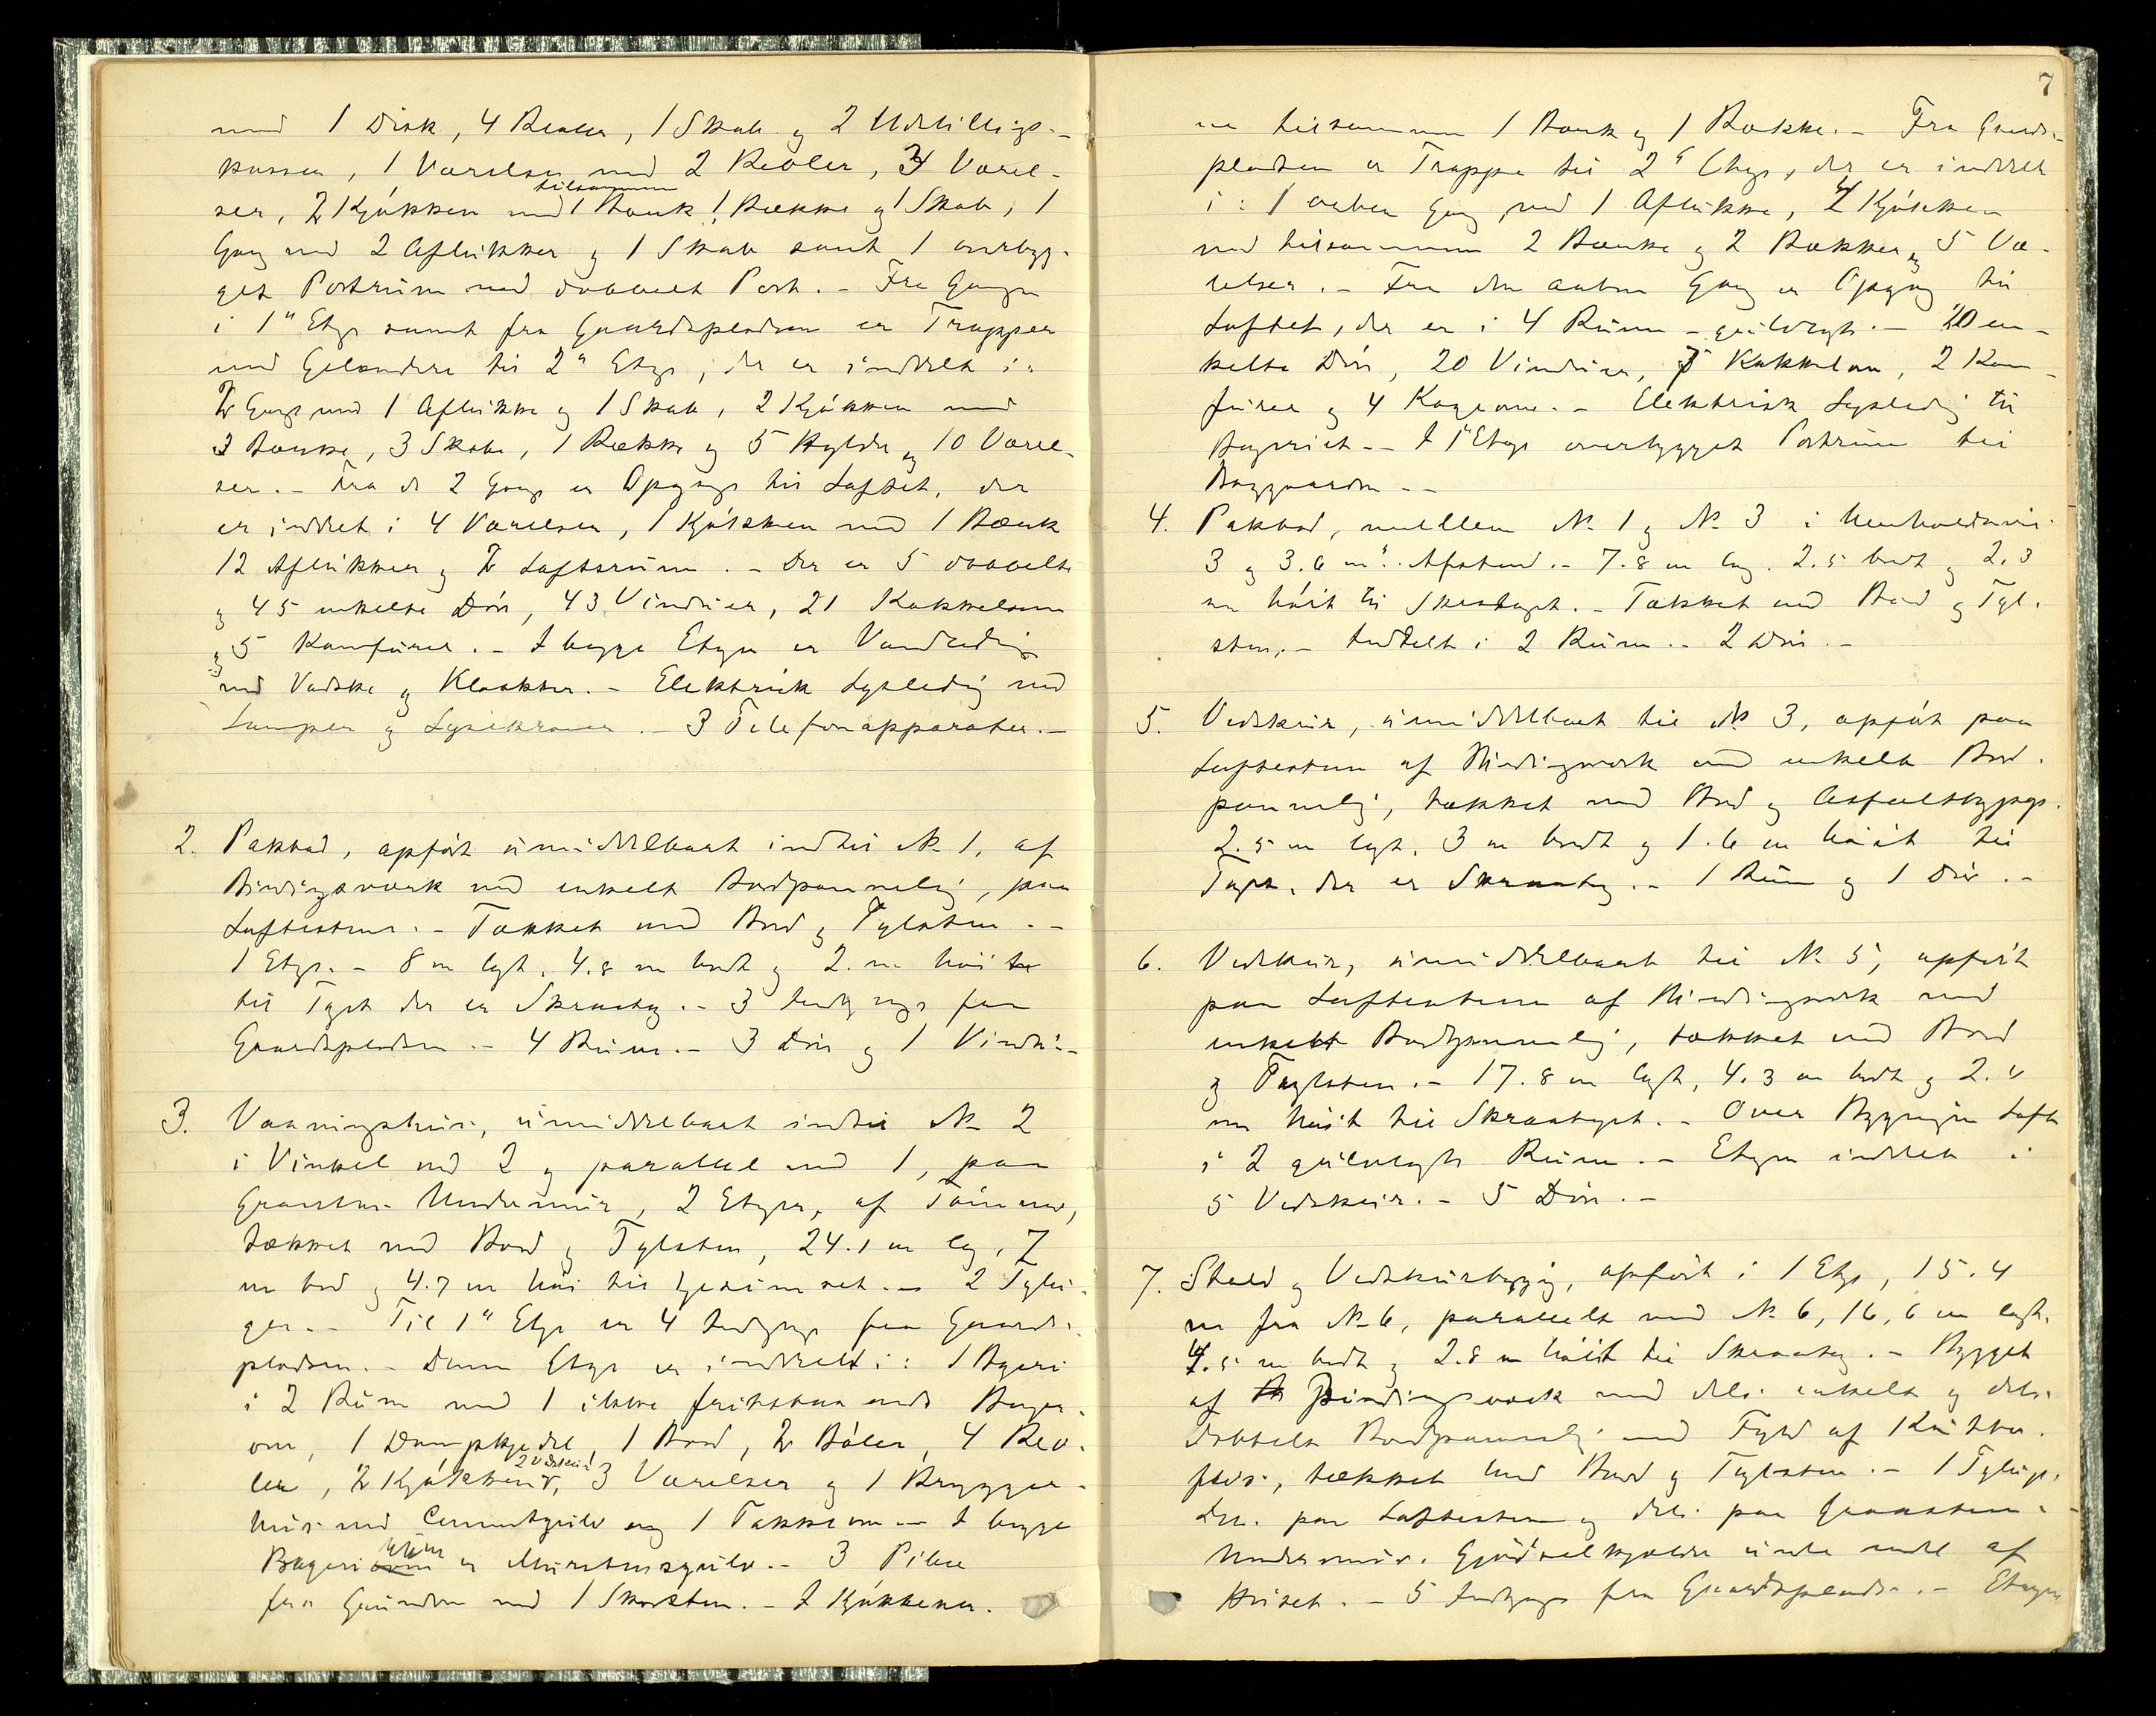 med 1 Disk, 4 Reoler, 1 Skab og 2 Udstillings-
kasser, 1 Værelse med 2 Reoler, 3 Værel-
ser, 2 Kjøkken med tilsammen 1 Bænk 1 Række og 1 Skab, 1
Gang med 2 Aflukker og 1 Skab samt 1 overbyg-
get Portrum med dobbelt Port. - Fra Gangen
i 1ª Etage samt fra Gaardspladsen er Trapper
med Gelændere til 2ª Etage, der er inddelt i:
2 Gange med 1 Aflukke og 1 Skab, 2 Kjøkken med
3 Bænke, 3 Skabe, 1 Række og 5 Hylder og 10 Værel-
ser. - Fra de 2 Gange er Opgange til Loftet, der
er inddelt i 4 Værelser, 1 Kjøkken med 1 Bænk
12 Aflukker og 2 Loftsrum. - Der er 5 dobbelte
og 45 enkelte Døre, 43 Vinduer, 21 Kakkelovne
og 5 Komfurer. - I begge Etager er Vandledning
med Vadske og Kloakker. - Elektrisk Lysledning med
Lamper og Lysekroner. - 3 Telefonapparater. -
2. Pakbod, opført umiddelbart indtil No 1, af
Bindingsværk med enkelt Bordpanneling, paa
Loftestene. - Tækket med Bord og Taglsten. -
1 Etage. - 8 m langt, 4.8 m bredt og 2. m høit
til Taget der er Skraatag. - 3 Indgange fra
Gaardspladsen. - 4 Rum. - 3 Døre og 1 Vindu. -
3. Vaaningshus, umiddelbart indtil No 2
i Vinkel med 2 og parallel med 1, paa
Graastens Undermur, 2 Etager, af Tømmer,
tækket med Bord og Taglsten, 24.1 m lang, 7
m bred og 4.7 m høi til Gesimset. - 2 Fløi-
ger. - Til 1ª Etage er 4 Indgange fra Gaards-
pladsen. - Denne Etage er inddelt i: 1 Bageri
i 2 Rum med 1 ikke fritstaaende Bager-
ovn, 1 Dampkjedel, 1 Bord, 2 Baler, 4 Reo-
ler, 2 Kjøkkener, 2 Vedskur 3 Værelser og 1 Brygger-
hus med Cementgulv og 1 Takkeovn. - I begge
Bageri rum er Murstensgulv. - 3 Piber
fra Grunden med 1 Skorsten. - I Kjøkkener-
7
ne tilsammen 1 Bænk og 1 Række. - Fra Gaards-
pladsen er Trappe til 2ª Etage, der er inddelt
i: 1 aaben Gang med 1 Aflukke, 4 Kjøkken
med tilsammen 2 Bænke og 2 Rækker og 5 Væ-
relser. - Fra den aabne Gang er Opgang til
Loftet, der er i 4 Rum - gulvlagt. - 20 en-
kelte Døre, 20 Vinduer, 7 Kakkelovne, 2 Kom-
furer og 4 Kogeovne. - Elektrisk Lysledning til
Bageriet. - I 1ª Etage overbygget Portrum til
Baggaarden. -
4. Pakbod, mellem No 1 og No 3 i henholdsvis
3 og 3.6 m's Afstand. - 7.8 m lang, 2.5 bredt og 2.3
m høit til Skraataget. - Tækket med Bord og Tagl-
sten. - Inddelt i 2 Rum. - 2 Døre. -
5. Vedskur, umiddelbart til No 3, opført paa
Loftestene af Bindingsværk med enkelt Bord-
panneling, tækket med Bord og Asfaltpap.
2.5 m langt, 3 m bredt og 1.6 m høit til
Taget, der er Skraatag. - 1 Rum og 1 Dør. -
6. Vedskur, umiddelbart til No 5, opført
paa Loftestene af Bindingsværk med
enkelt Bordpanneling, tækket med Bord
og Taglsten. - 17.8 m langt, 4.3 m bredt og 2.
m høit til Skraataget. - Over Bygningen Loft
i 2 gulvlagte Rum. - Etagen inddelt i
5 Vedskur. - 5 Døre. -
7. Stald og Vedskursbygning, opført i 1 Etage, 15.4
m fra No 6, parallelt med No 6, 16,6 m langt,
4.5 m bredt og 2.8 m høit til Skraatag. - Bygget
af Bindingsværk med dels enkelt og dels
dobbelt Bordpanneling med Fyld af Kutter-
flis, tækket med Bord og Taglsten. - 1 Fløig.
Dels paa Loftestene og dels paa Graastens
Undermur. Gjødselkjælder under endel af
Huset. - 5 Indgange fra Gaardspladsen. - Etagen